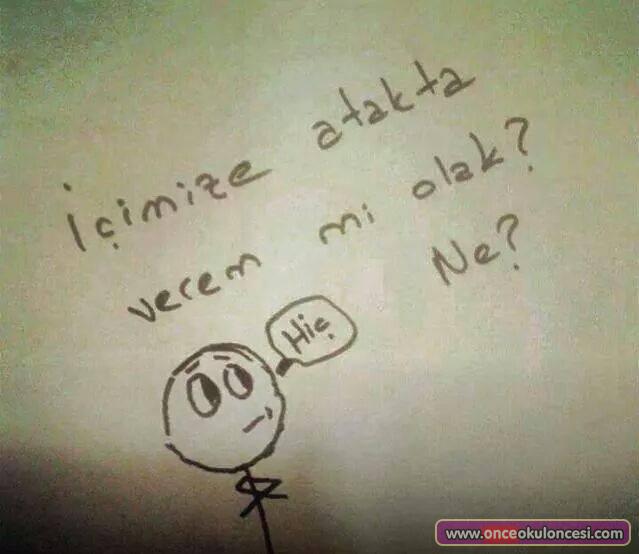 İçimize atakta
verem mi olak?
Ne?
Hiç
www.onceokuloncesi.com